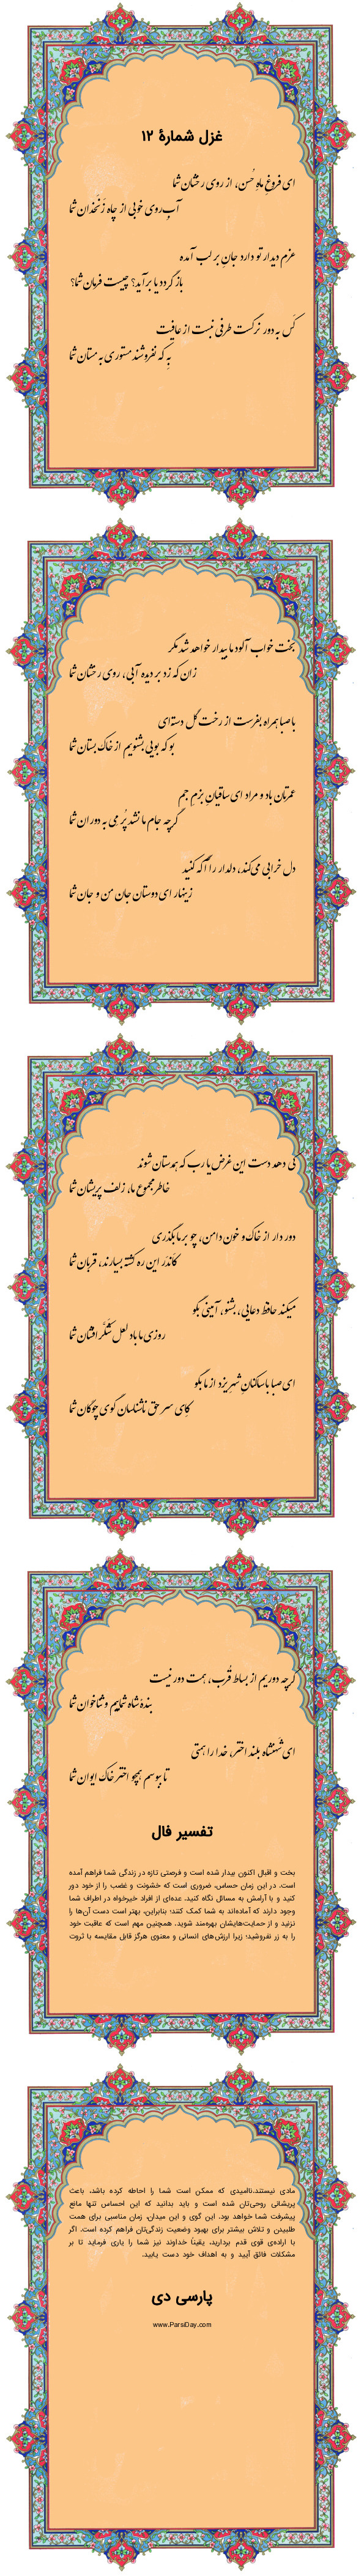 غزل شمارهٔ ۱۲
ای فروغِ ماهِ حُسن، از روی رخشان شما
آبروی خوبی از چاه زَنَخدان شما
عزم دیدار تو دارد جانِ بر لب آمده
بازگردد یا برآید؟ چیست فرمان شما؟
کَس به دور نرگست طرفی نبست از عافیت
بِه که نفروشند مستوری به مستان شما
بخت خواب آلود ما بیدار خواهد شد مگر
زان که زد بر دیده آبی، روی رخشان شما
با صبا همراه بفرست از رخت گل دسته‌ای
بو که بویی بشنویم از خاک بستان شما
عمرتان باد و مراد ای ساقیانِ بزمِ جم
گرچه جامِ ما نشد پُر می به دوران شما
دل خرابی می‌کند، دلدار را آگه کنید
زینهار ای دوستان جان من و جان شما
کی دهد دست این غرض یا رب که همدستان شوند
خاطر مجموع ما، زلف پریشان شما
دور دار از خاک و خون دامن، چو بر ما بگذری
کاندر این ره کشته بسیارند، قربان شما
میکند حافظ دعایی، بشنو، آمینی بگو
روزی ما باد لعل شکَّرافشان شما
ای صبا با ساکنانِ شهرِ یزد از ما بگو
کِای سر حق ناشناسان گوی چوگان شما
گرچه دوریم از بساط قُرب، همت دور نیست
بندهٔ شاه شماییم و ثناخوان شما
ای شهنشاه بلند اختر، خدا را همتی
تا ببوسم همچو اختر خاک ایوان شما
تفسیر فال
بخت و اقبال اکنون بیدار شده است و فرصتی تازه در زندگی شما فراهم آمده
است. در این زمان حساس، ضروری است که خشونت و غضب را از خود دور
کنید و با آرامش به مسائل نگاه کنید. عده‌ای از افراد خیرخواه در اطراف شما
وجود دارند که آماده‌اند به شما کمک کنند؛ بنابراین، بهتر است دست آن‌ها را
نزنید و از حمایت‌هایشان بهره‌مند شوید. همچنین مهم است که عاقبت خود
را به زر نفروشید؛ زیرا ارزش‌های انسانی و معنوی هرگز قابل مقایسه با ثروت
مادی نیستند.ناامیدی که ممکن است شما را احاطه کرده باشد، باعث
پریشانی روحی‌تان شده است و باید بدانید که این احساس تنها مانع
پیشرفت شما خواهد بود. این گوی و این میدان، زمان مناسبی برای همت
طلبیدن و تلاش بیشتر برای بهبود وضعیت زندگی‌تان فراهم کرده است. اگر
با اراده‌ی قوی قدم بردارید، یقیناً خداوند نیز شما را یاری فرماید تا بر
مشکلات فائق آیید و به اهداف خود دست یابید.
پارسی دی
www.ParsiDay.com